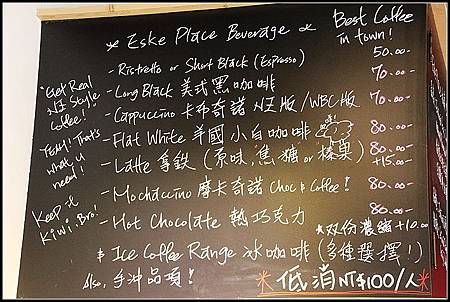 * Eske Place Beverage *
Best Coffee in town!
- Ristretto or Short Black (Espresso) 50.00-
- Long Black 美式黑咖啡 70.00-
- Cappuccino 卡布奇諾 NZ版/WBC版 70.00-
- Flat White 羊國小白咖啡 80.00-
- Latte 拿鐵 (原味, 焦糖 or 榛果) 80.00- +15.00-
- Mochaccino 摩卡奇諾 Choc & Coffee! 80.00-
- Hot Chocolate 熱巧克力 80.00-
*双份濃縮 +10.00
& Ice Coffee Range 冰咖啡 (多種選擇!)
Also, 手沖品項!
*低消NT$100/人*
"Get Real
NZ Style
Coffee!"
YEAH! That's
what u
need!
Keep it
Kiwi, Bro!